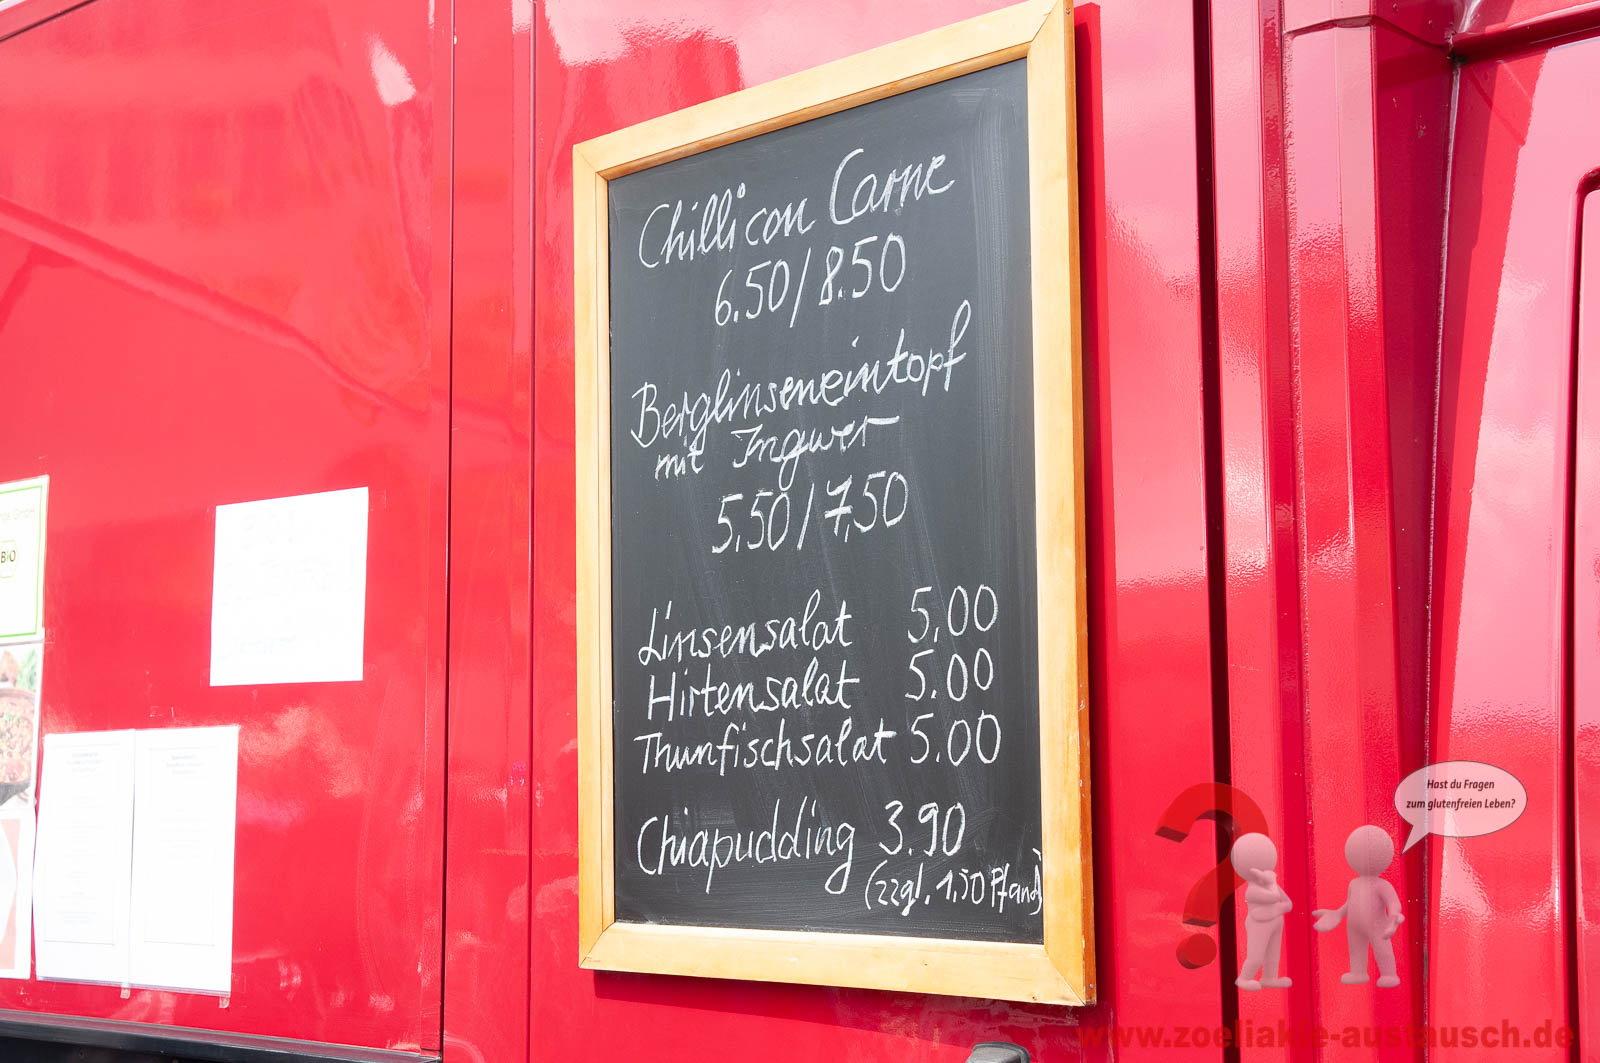 Chilli con Carne
6.50/8.50
Berglinseneintopf
mit Ingwer
5,50/7,50
Linsensalat 5.00
Hirtensalat 5.00
Thunfischsalat 5.00
Chiapudding 3.90
(zzgl. 1,50 Pfand)
GmbH
BIO
Hast du Fragen
zum glutenfreien Leben?
www.zoeliakie-austausch.de